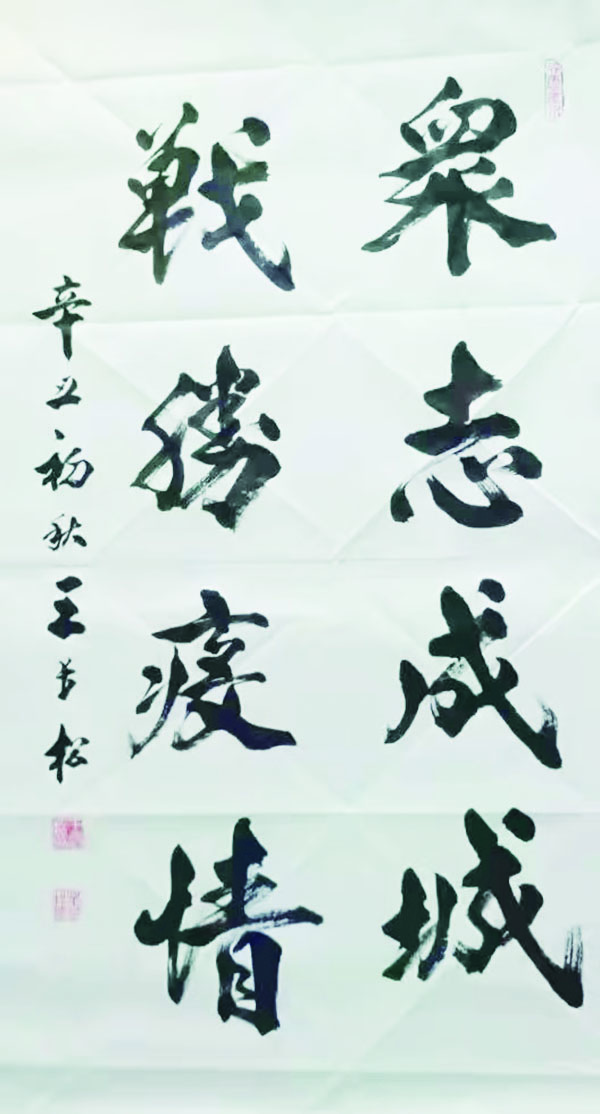 衆志成城
戰勝疫情
辛丑初秋王长松